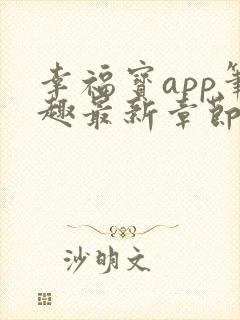 幸福宝app笔
趣最新章节
沙明文